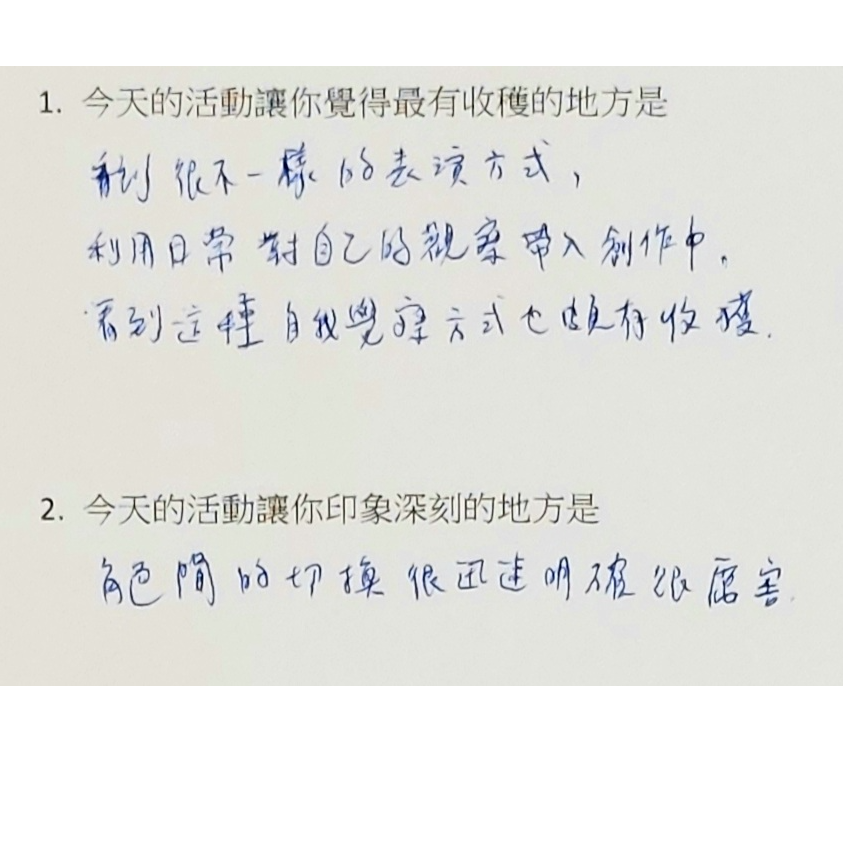 1. 今天的活動讓你覺得最有收穫的地方是
看到很不一樣的表演方式，
利用日常對自己的觀察帶入創作中。
看到這種自我覺察方式也頗有收獲.
2. 今天的活動讓你印象深刻的地方是
角色間的切換很迅速明確很厲害.